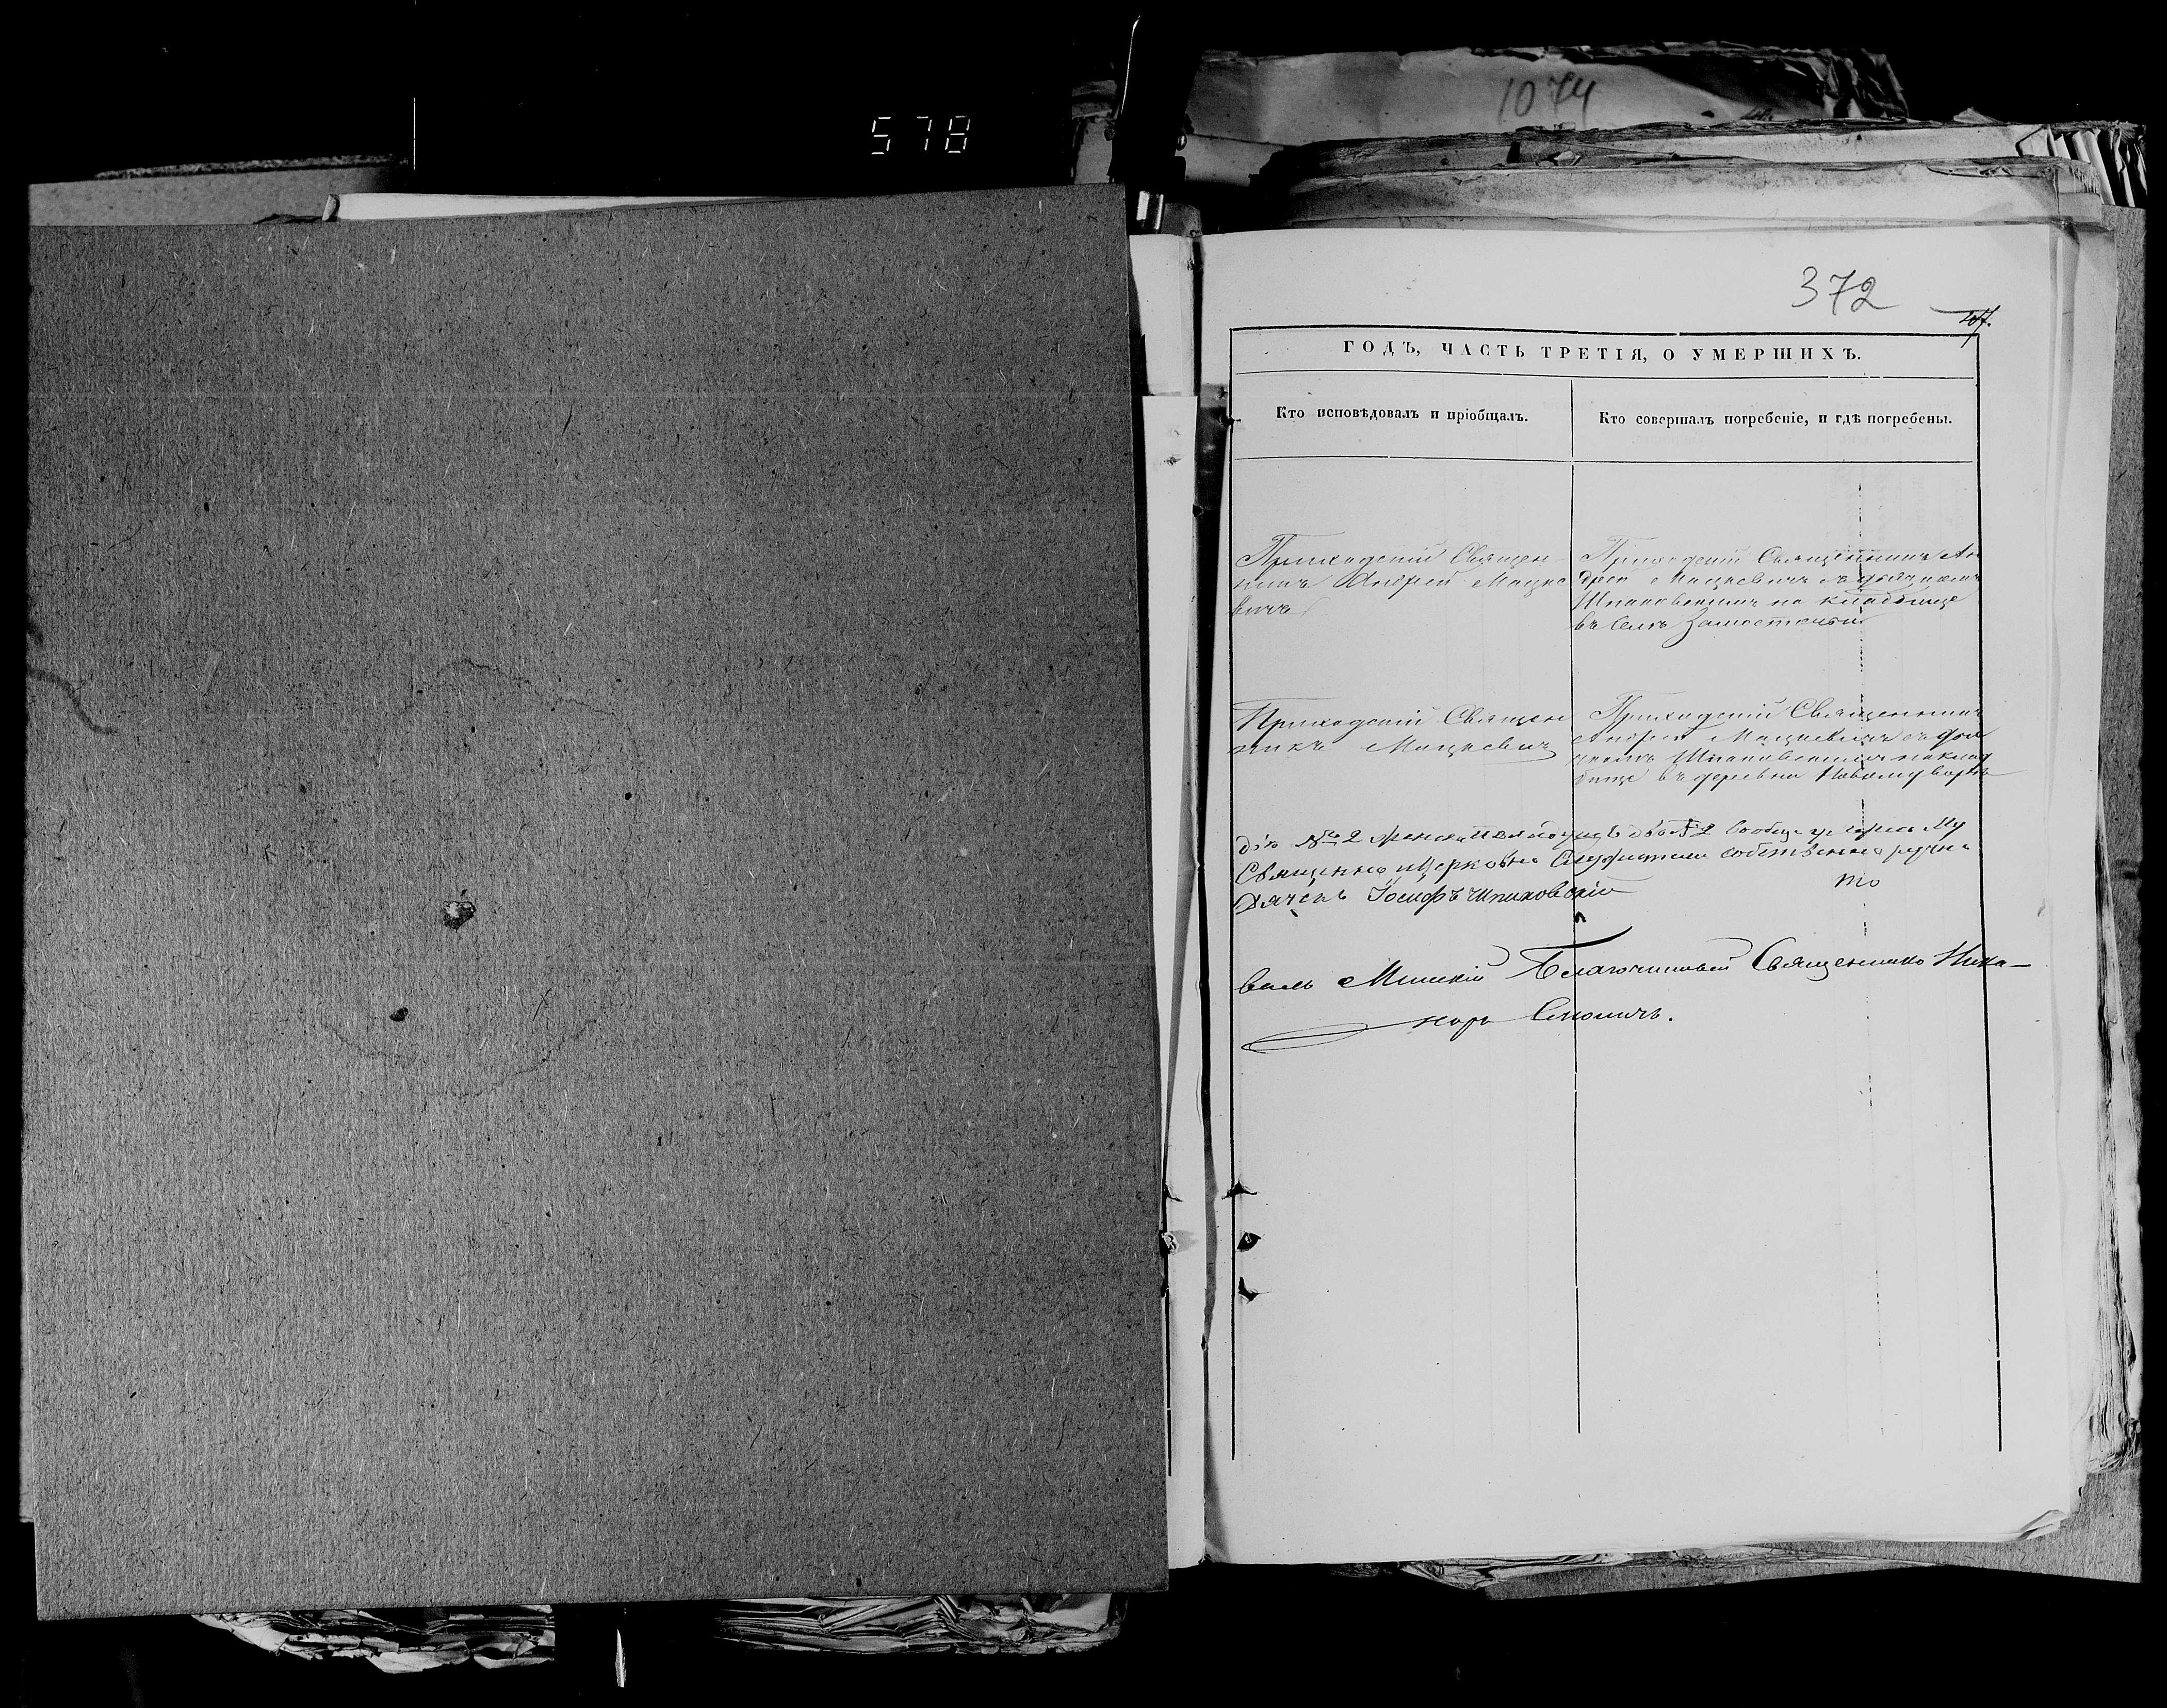 578
1074
372
ГОДЪ, ЧАСТЬ ТРЕТІЯ, О УМЕРШИХЪ.
Кто исповѣдовалъ и пріобщалъ.
Кто совершалъ погребеніе, и гдѣ погребены.
Приходскій Священ-
никъ Андрей Мацке
вичъ
Приходскій Священникъ Ан
дрей Мацкевичъ съ дьячкомъ
Шпаковскимъ на кладбище
въ селѣ Замосточьи
Приходскій Священ
никъ Мацкевичъ
Приходскій Священникъ
Андрей Мацкевичъ съ дья
чкомъ Шпаковскимъ на клад
бище въ деревни
№ 2 женска пола
Священно и Церковно Служители собственно ручно
Дячекъ Іосифъ Шпаковскій
то
валъ Минскій Благочинный Священникъ Ника-
норъ Смоличъ.